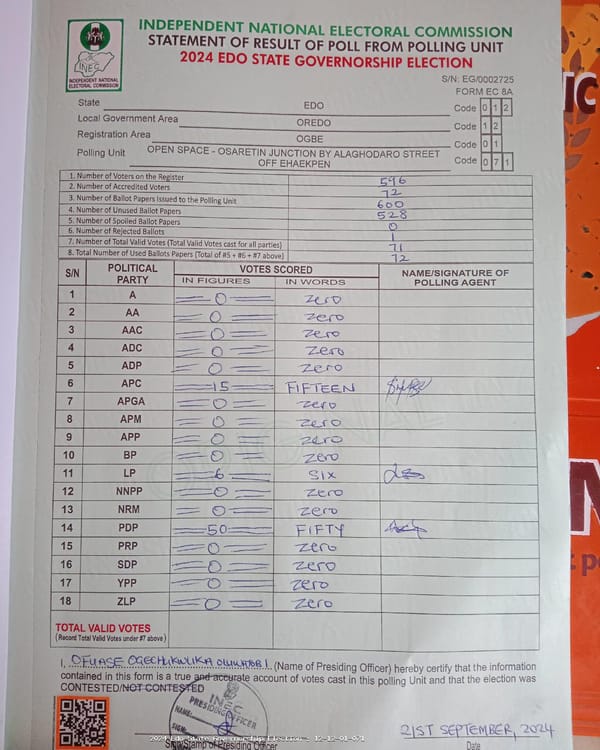 INDEPENDENT NATIONAL ELECTORAL COMMISSION
STATEMENT OF RESULT OF POLL FROM POLLING UNIT
2024 EDO STATE GOVERNORSHIP ELECTION
INEC
INDEPENDENT NATIONAL ELECTORAL COMMISSION
S/N: EG/0002725
FORM EC 8A
State EDO Code 0 1 2
Local Government Area OREDO Code 1 2
Registration Area OGBE Code 0 1
Polling Unit OPEN SPACE - OSARETIN JUNCTION BY ALAGHODARO STREET OFF EHAEKPEN Code 0 7 1
1. Number of Voters on the Register 596
2. Number of Accredited Voters 72
3. Number of Ballot Papers Issued to the Polling Unit 600
4. Number of Unused Ballot Papers 528
5. Number of Spoiled Ballot Papers 0
6. Number of Rejected Ballots 1
7. Number of Total Valid Votes (Total Valid Votes cast for all parties) 71
8. Total Number of Used Ballots Papers (Total of #5 + #6 + #7 above) 72
S/N POLITICAL PARTY VOTES SCORED NAME/SIGNATURE OF POLLING AGENT
IN FIGURES IN WORDS
1 A 0 zero
2 AA 0 zero
3 AAC 0 zero
4 ADC 0 zero
5 ADP 0 zero
6 APC 15 FIFTEEN
7 APGA 0 zero
8 APM 0 zero
9 APP 0 zero
10 BP 0 zero
11 LP 6 SIX
12 NNPP 0 zero
13 NRM 0 zero
14 PDP 50 FIFTY
15 PRP 0 zero
16 SDP 0 zero
17 YPP 0 zero
18 ZLP 0 zero
TOTAL VALID VOTES
(Record Total Valid Votes under #7 above)
I, OGECHUKWUKA (Name of Presiding Officer) hereby certify that the information
contained in this form is a true and accurate account of votes cast in this polling Unit and that the election was
CONTESTED/NOT CONTESTED
INEC
PRESIDING OFFICER
NAME:
SIGN:
2024 Edo State Governorship Election - 12-12-01-071
Sign/Stamp of Presiding Officer
21ST SEPTEMBER, 2024
Date